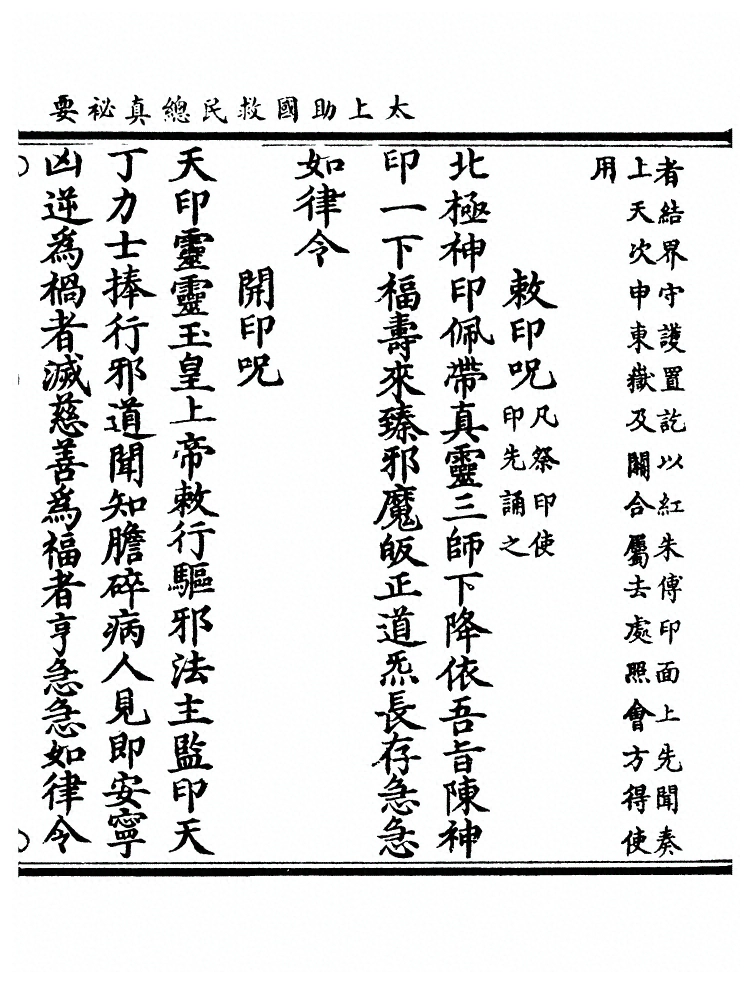 太上助國救民總真祕要
者結界守護置訖以紅朱傅印面上先聞奏
上天次申東嶽及關合屬去處照會方得使
用
敕印呪凡祭印使
印先誦之
北極神印佩帶真靈三師下降依吾旨陳神
印一下福壽來臻邪魔皈正道炁長存急急
如律令
開印呪
天印靈靈玉皇上帝敕行驅邪法主監印天
丁力士捧行邪道聞知膽碎病人見即安寧
凶逆為禍者滅慈善為福者亨急急如律令